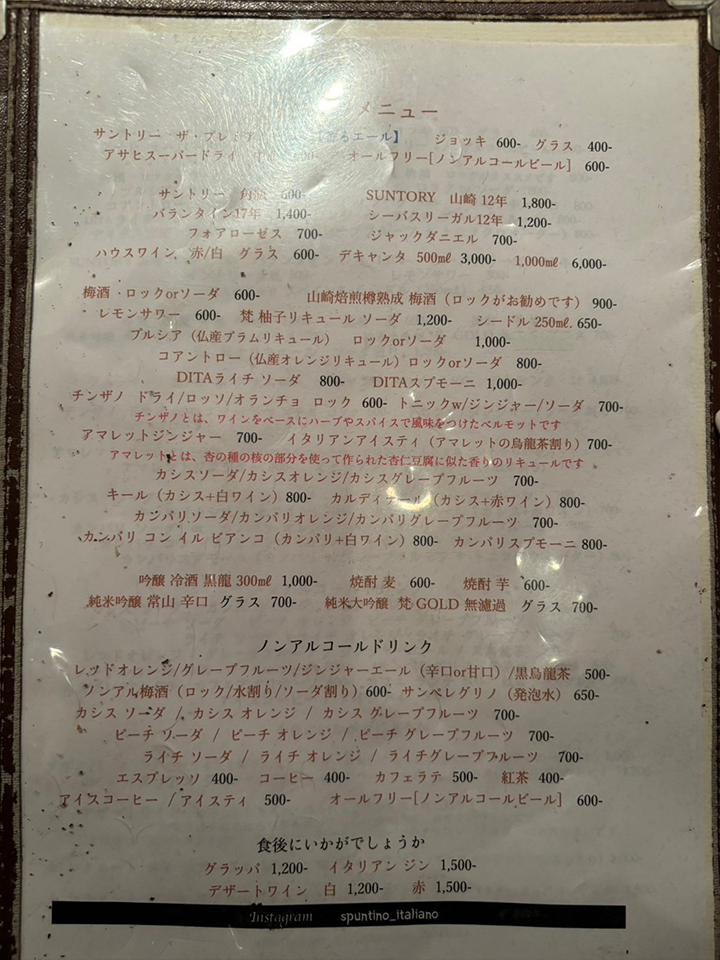 メニュー
サントリー ザ・プレミア エール】 ジョッキ 600- グラス 400-
アサヒスーパードライ オールフリー[ノンアルコールビール] 600-
サントリー 角瓶 600- SUNTORY 山崎 12年 1,800-
バランタイン17年 1,400- シーバスリーガル12年 1,200-
フォアローゼス 700- ジャックダニエル 700-
ハウスワイン 赤/白 グラス 600- デキャンタ 500㎖ 3,000- 1,000㎖ 6,000-
梅酒・ロックorソーダ 600- 山崎焙煎樽熟成 梅酒（ロックがお勧めです） 900-
レモンサワー 600- 梵 柚子リキュール ソーダ 1,200- シードル 250㎖. 650-
プルシア（仏産プラムリキュール） ロックorソーダ 1,000-
コアントロー（仏産オレンジリキュール）ロックorソーダ 800-
DITAライチ ソーダ 800- DITAスプモーニ 1,000-
チンザノ ドライ/ロッソ/オランチョ ロック 600- トニックw/ジンジャー/ソーダ 700-
チンザノとは、ワインをベースにハーブやスパイスで風味をつけたベルモットです
アマレットジンジャー 700- イタリアンアイスティ（アマレットの烏龍茶割り）700-
アマレットとは、杏の種の核の部分を使って作られた杏仁豆腐に似た香りのリキュールです
カシスソーダ/カシスオレンジ/カシスグレープフルーツ 700-
キール（カシス+白ワイン）800- カルディナール（カシス+赤ワイン）800-
カンパリソーダ/カンパリオレンジ/カンパリグレープフルーツ 700-
カンパリ コン イル ビアンコ（カンパリ+白ワイン）800- カンパリスプモーニ 800-
吟醸 冷酒 黒龍 300㎖ 1,000- 焼酎 麦 600- 焼酎 芋 600-
純米吟醸 常山 辛口 グラス 700- 純米大吟醸 梵 GOLD 無濾過 グラス 700-
ノンアルコールドリンク
レッドオレンジ/グレープフルーツ/ジンジャーエール（辛口or甘口）/黒烏龍茶 500-
ノンアル梅酒（ロック/水割り/ソーダ割り）600- サンペレグリノ（発泡水）650-
カシス ソーダ / カシス オレンジ / カシス グレープフルーツ 700-
ピーチ ソーダ / ピーチ オレンジ / ピーチ グレープフルーツ 700-
ライチ ソーダ / ライチ オレンジ / ライチグレープフルーツ 700-
エスプレッソ 400- コーヒー 400- カフェラテ 500- 紅茶 400-
アイスコーヒー / アイスティ 500- オールフリー[ノンアルコールビール] 600-
食後にいかがでしょうか
グラッパ 1,200- イタリアン ジン 1,500-
デザートワイン 白 1,200- 赤 1,500-
Instagram spuntino_italiano